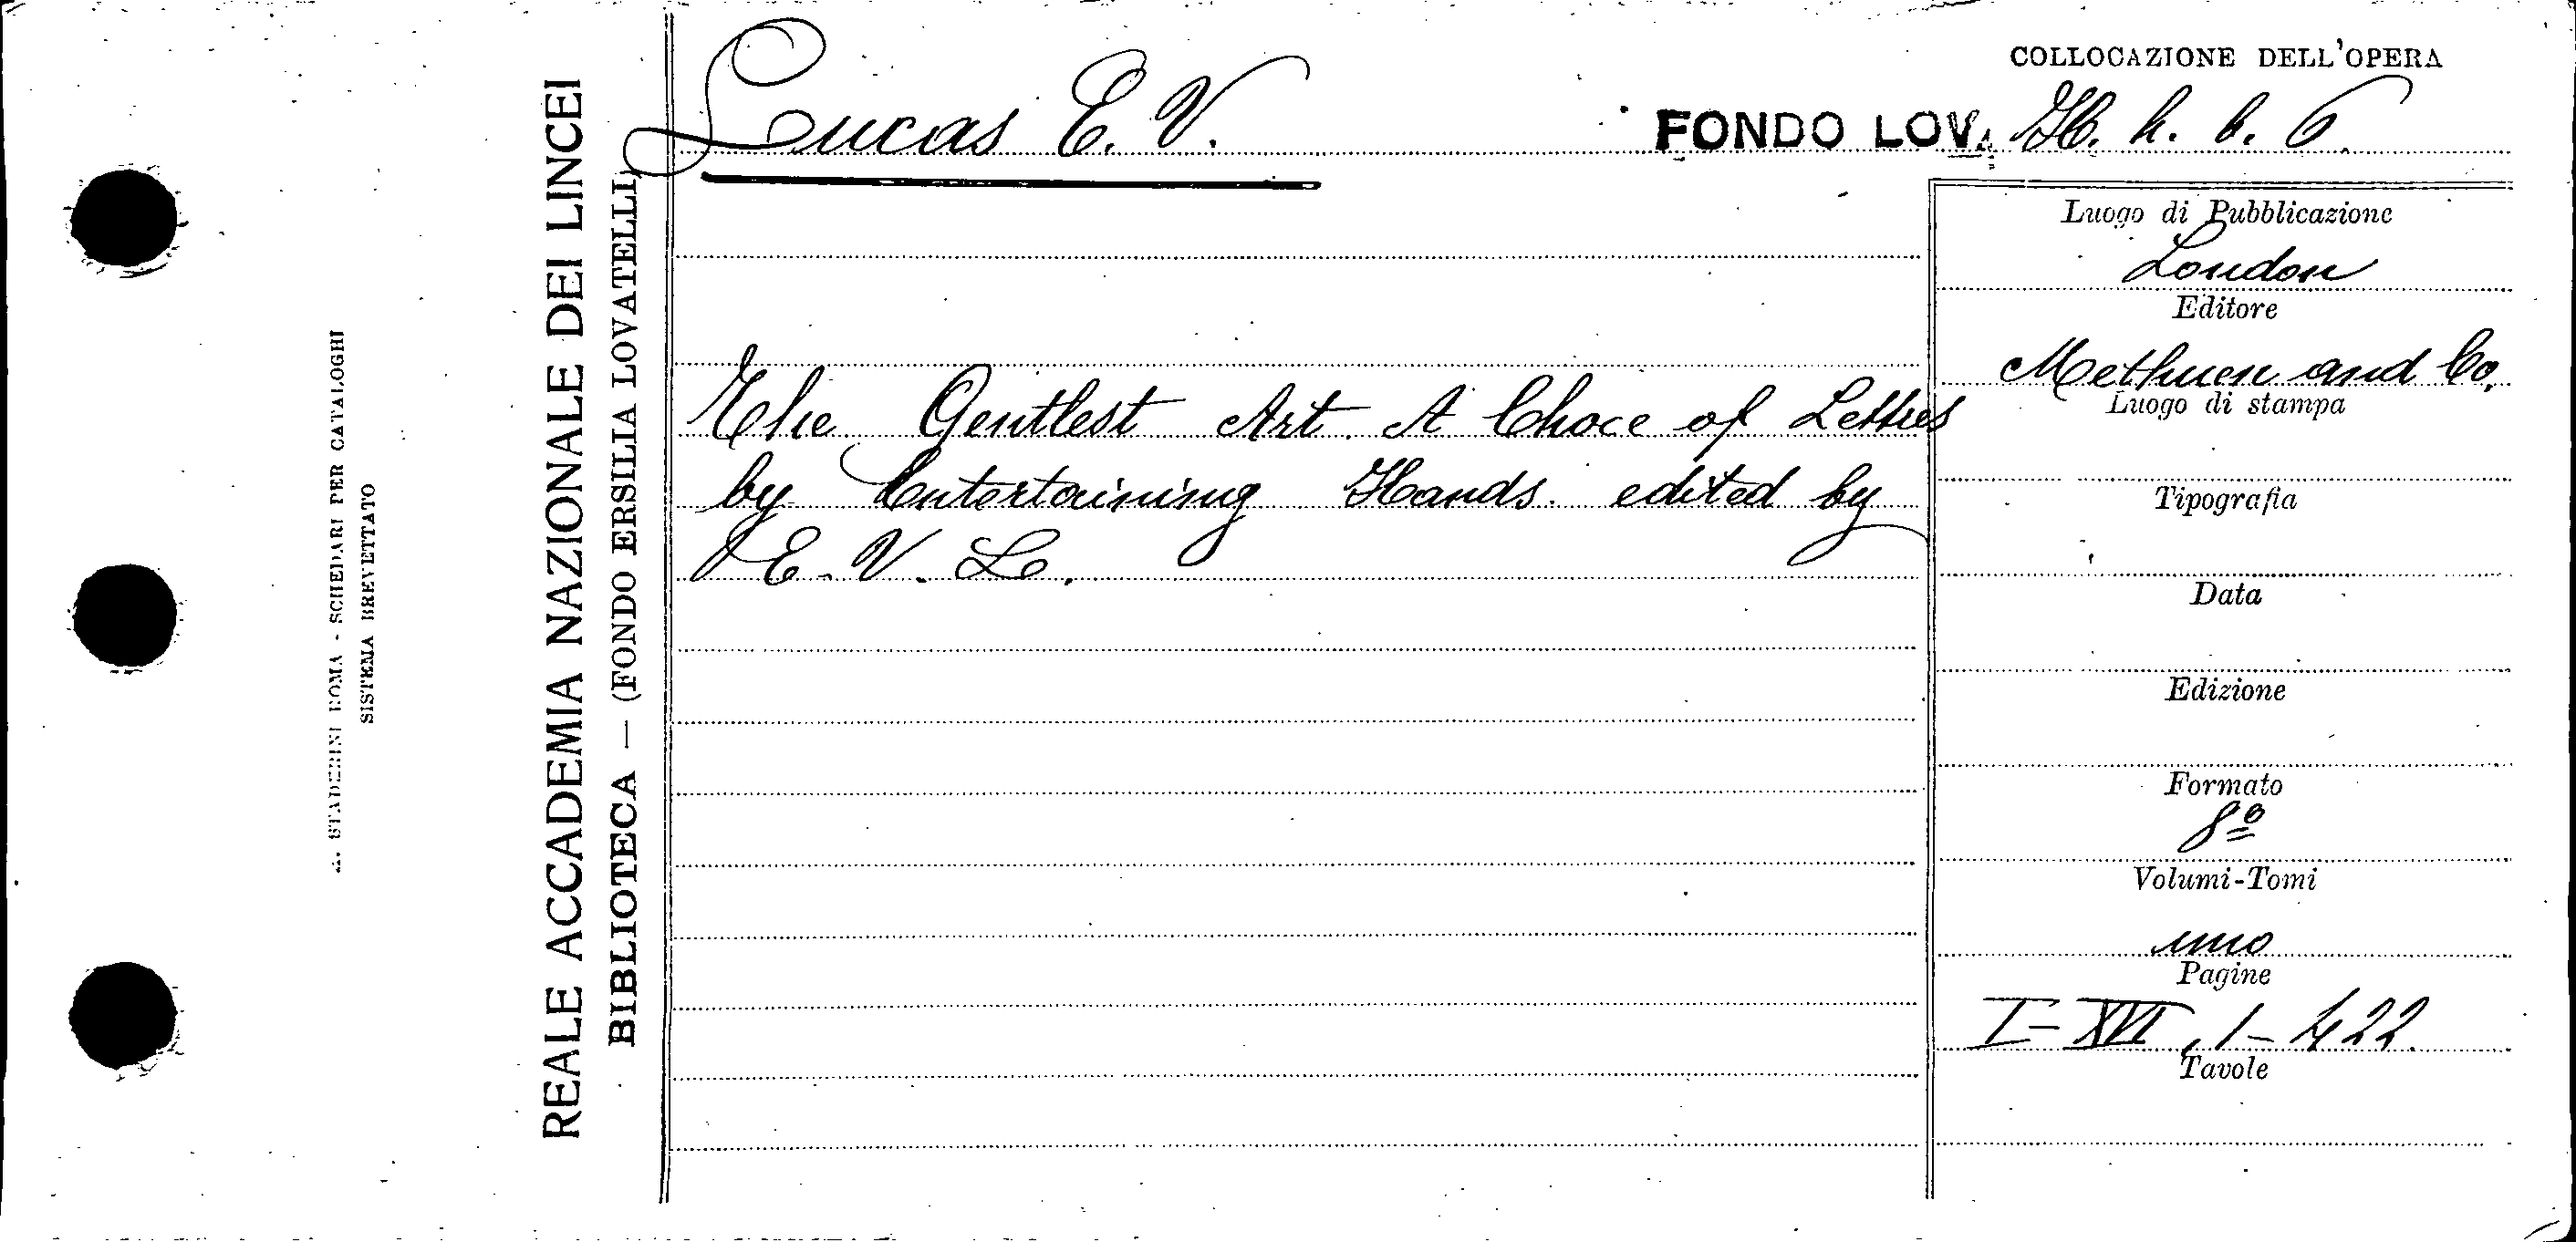 A. STADERINI ROMA - SCHEDARI PER CATALOGHI
SISTEMA BREVETTATO
REALE ACCADEMIA NAZIONALE DEI LINCEI
BIBLIOTECA — (FONDO ERSILIA LOVATELLI)
Lucas E. V.
COLLOCAZIONE DELL'OPERA
FONDO LOV. H. h. b. 6.
The Gentlest Art. A Choce of Lettres
by Entertaining Hands. edited by
E. V. L.
Luogo di Pubblicazione
London
Editore
Methuen and Co.
Luogo di stampa
Tipografia
Data
Edizione
Formato
8º
Volumi-Tomi
uno
Pagine
I-XVI, 1-422.
Tavole